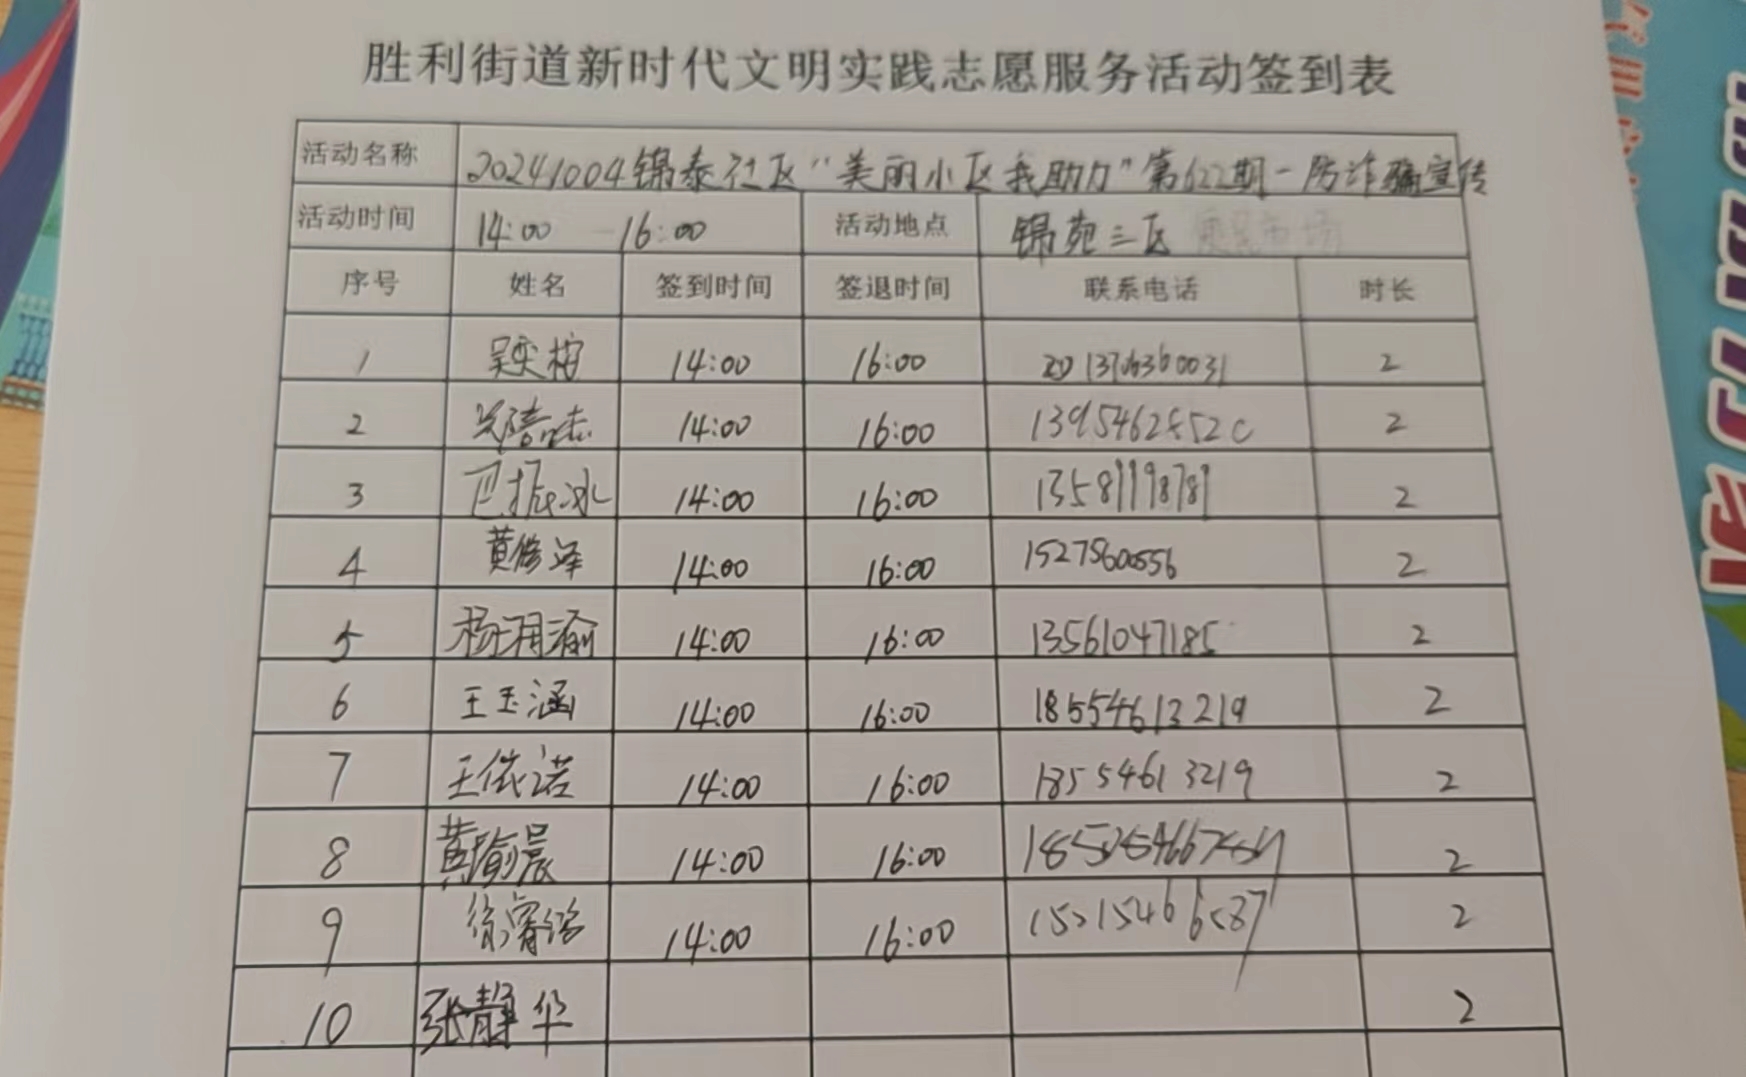 胜利街道新时代文明实践志愿服务活动签到表
活动名称 20241004锦泰社区“美丽小区我助力”第622期-防诈骗宣传
活动时间 14:00 -16:00 活动地点 锦苑三区
序号 姓名 签到时间 签退时间 联系电话 时长
1 14:00 16:00 13706360031 2
2 14:00 16:00 2
3 巴振冰 14:00 16:00 13581198781 2
4 黄修泽 14:00 16:00 15275600556 2
5 杨翔渝 14:00 16:00 13561047185 2
6 王玉涵 14:00 16:00 18554613219 2
7 王依诺 14:00 16:00 18554613219 2
8 黄瑜晨 14:00 16:00 2
9 14:00 16:00 2
10 张静华 2